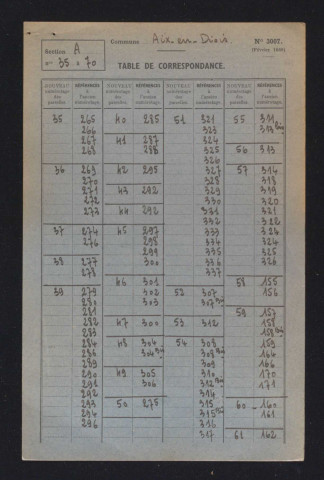 Section A
Commune Aix-en-Diois
N° 3007.
n° 35 à 70
TABLE DE CORRESPONDANCE.
NOUVEAU numérotage des parcelles. RÉFÉRENCES à l'ancien numérotage NOUVEAU numérotage des parcelles. RÉFÉRENCES à l'ancien numérotage NOUVEAU numérotage des parcelles. RÉFÉRENCES à l'ancien numérotage NOUVEAU numérotage des parcelles. RÉFÉRENCES à l'ancien numérotage
35 265 40 285 51 321 55 311
266 323 313 bis
267 41 287 324
268 288 325 56 313
326
36 269 42 295 327 57 314
270 328 318
271 43 292 329 319
272 330 320
273 44 292 331 321
332 322
37 274 45 297 333 324
276 298 334 324
299 335 325
38 277 300 336 326
278 337
46 301 58 155
39 279 302 52 307 156
280 303 307 bis
281 59 157
282 47 300 53 312 158
283 158 bis
284 48 304 54 308 164
286 304 bis 308 bis 166
289 309 164
290 49 305 310 170
291 306 312 bis 171
292 314
293 50 275 315 60 160
294 315 bis 161
296 316
317 61 162